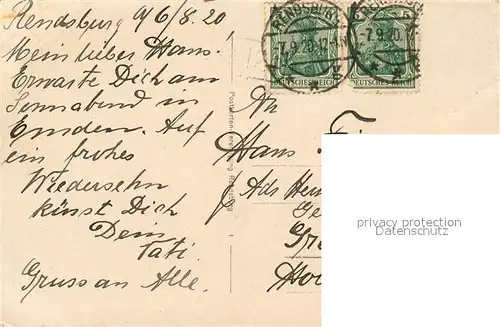 Rendsburg 9/6/8.20,
Mein lieber Hans.
Erwarte Dich am
Sonnabend in
Emden. Auf
ein frohes
Wiedersehn
küsst Dich
Dein
Tati.
Gruss an Alle.
RENDSBURG
-7.9.20.
DEUTSCHES REICH
5
-7.9.20.
DEUTSCHES REICH
An
Hans
Ads
privacy protection
Datenschutz